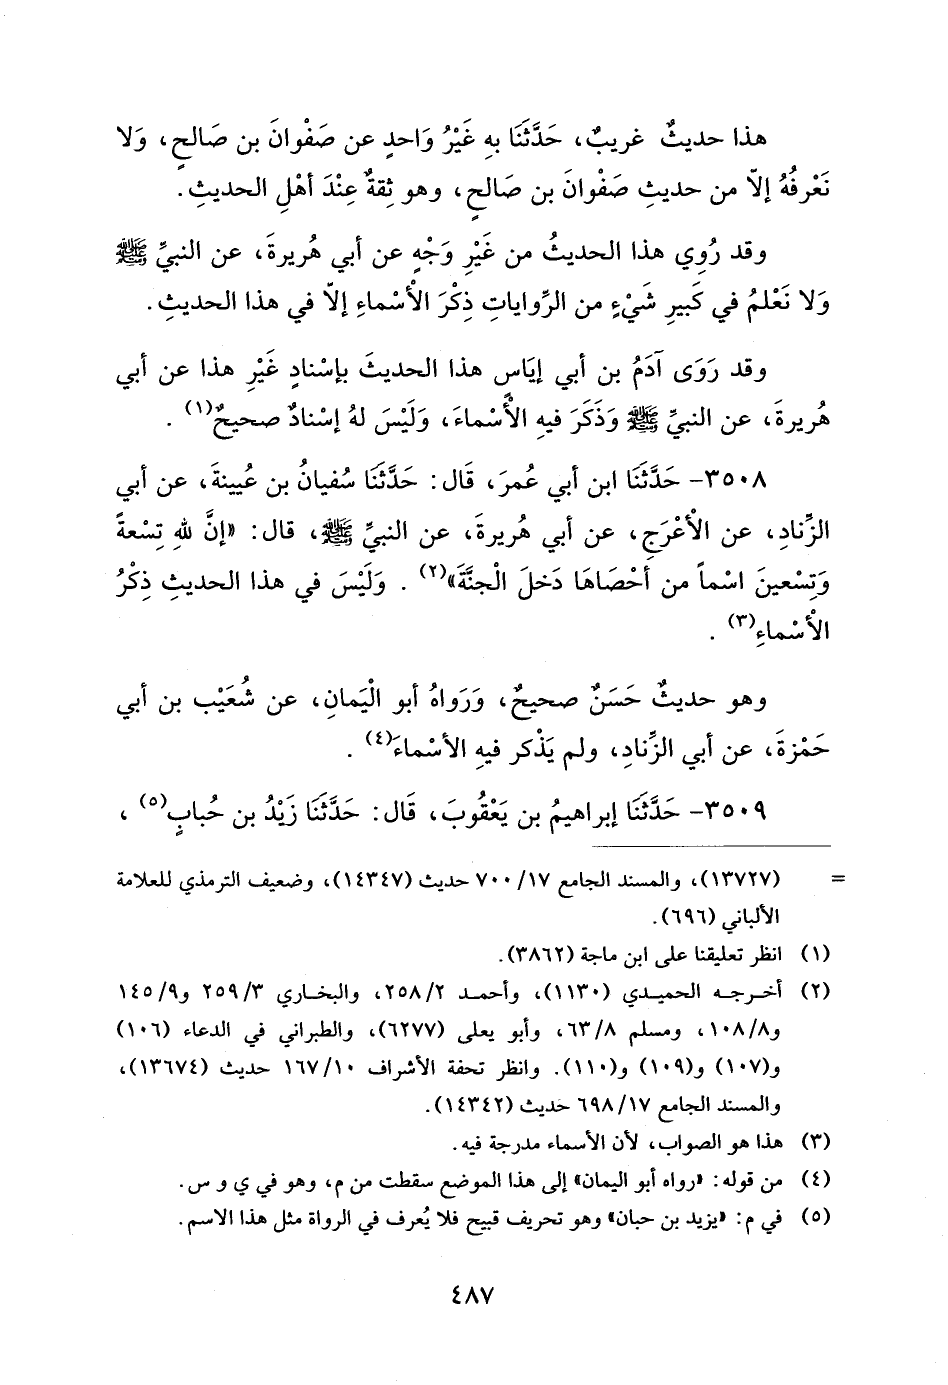 هذا حديثٌ غريبٌ، حَدَّثَنَا بِهِ غَيْرُ وَاحدٍ عن صَفْوانَ بن صَالحٍ، وَلا
نَعْرفُهُ إلاّ من حديثِ صَفْوانَ بن صَالحٍ، وهو ثِقةٌ عِنْدَ أهْلِ الحديثِ.
وقد رُوِي هذا الحديثُ من غَيْرِ وَجْهٍ عن أبي هُريرةَ، عن النبيِّ ﷺ
وَلا نَعْلمُ في كَبيرِ شَيْءٍ من الرِّواياتِ ذِكْرَ الأسْماءِ إلاّ في هذا الحديثِ.
وقد رَوَى آدَمُ بن أبي إيَاسٍ هذا الحديثَ بإسْنادٍ غَيْرِ هذا عن أبي
هُريرةَ، عن النبيِّ ﷺ وَذَكَرَ فيهِ الأسْماءَ، وَلَيْسَ لهُ إسْنادٌ صحيحٌ(١) .
٣٥٠٨- حَدَّثَنَا ابن أبي عُمرَ، قَال: حَدَّثَنَا سُفيانُ بن عُيينةَ، عن أبي
الزِّنادِ، عن الأعْرَجِ، عن أبي هُريرةَ، عن النبيِّ ﷺ، قال: «إنَّ للهِ تِسْعةً
وَتِسْعينَ اسْماً من أحْصَاهَا دَخلَ الْجنَّةَ»(٢) . وَلَيْسَ في هذا الحديثِ ذِكْرُ
الأسْماءِ(٣) .
وهو حديثٌ حَسَنٌ صحيحٌ، وَرَواهُ أبو الْيَمانِ، عن شُعَيْب بن أبي
حَمْزةَ، عن أبي الزِّنادِ، ولم يَذْكر فيهِ الأسْماءَ(٤) .
٣٥٠٩- حَدَّثَنَا إبراهيمُ بن يَعْقُوبَ، قَال: حَدَّثَنَا زَيْدُ بن حُبابٍ(٥) ،
= (١٣٧٢٧)، والمسند الجامع ١٧/ ٧٠٠ حديث (١٤٣٤٧)، وضعيف الترمذي للعلامة
الألباني (٦٩٦).
(١) انظر تعليقنا على ابن ماجة (٣٨٦٢).
(٢) أخرجه الحميدي (١١٣٠)، وأحمد ٢/ ٢٥٨، والبخاري ٣/ ٢٥٩ و٩/ ١٤٥
و٨/ ١٠٨، ومسلم ٨/ ٦٣، وأبو يعلى (٦٢٧٧)، والطبراني في الدعاء (١٠٦)
و(١٠٧) و(١٠٩) و(١١٠). وانظر تحفة الأشراف ١٠/ ١٦٧ حديث (١٣٦٧٤)،
والمسند الجامع ١٧/ ٦٩٨ حديث (١٤٣٤٢).
(٣) هذا هو الصواب، لأن الأسماء مدرجة فيه.
(٤) من قوله: «رواه أبو اليمان» إلى هذا الموضع سقطت من م، وهو في ي و س.
(٥) في م: «يزيد بن حبان» وهو تحريف قبيح فلا يُعرف في الرواة مثل هذا الاسم.
٤٨٧